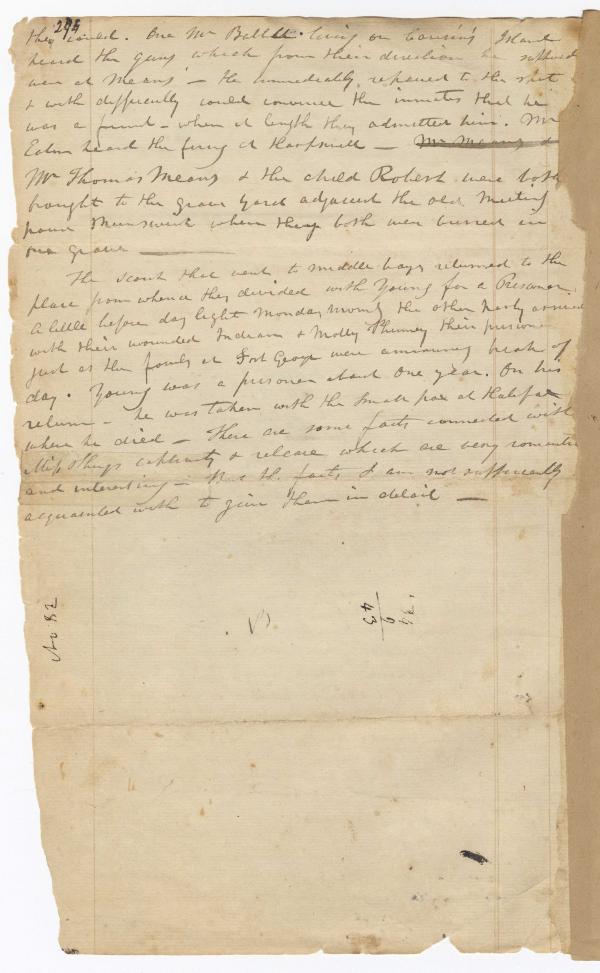 294
they could. One Mr Battell living on Cousin's Island
heard the guns which from their direction he supposed
were at Means' — He immediately repaired to the spot
& with difficulty could convince the inmates that he
was a friend — when at length they admitted him. Mr
Eaton heard the firing at Harpswell — Mr Means &
Mr Thomas Means & the child Robert were both
brought to the grave yard adjacent the old Meeting
house Brunswick where they both were burried in
one grave
The scout that went to middle bays returned to the
place from whence they divided with Young for a Prisoner.
A little before day light Monday morng the other party arrived
with their wounded Indian & Molly Phinney their prisoner
just as the fowls at Fort George were announcing break of
day. Young was a prisoner about One year. On his
return — he was taken with the small pox at Halifax
where he died — There are some facts connected with
Miss captivity & release which are very romantic
and interesting — facts I am not sufficiently
acquainted with to give them in detail —
No 82
34
9
43